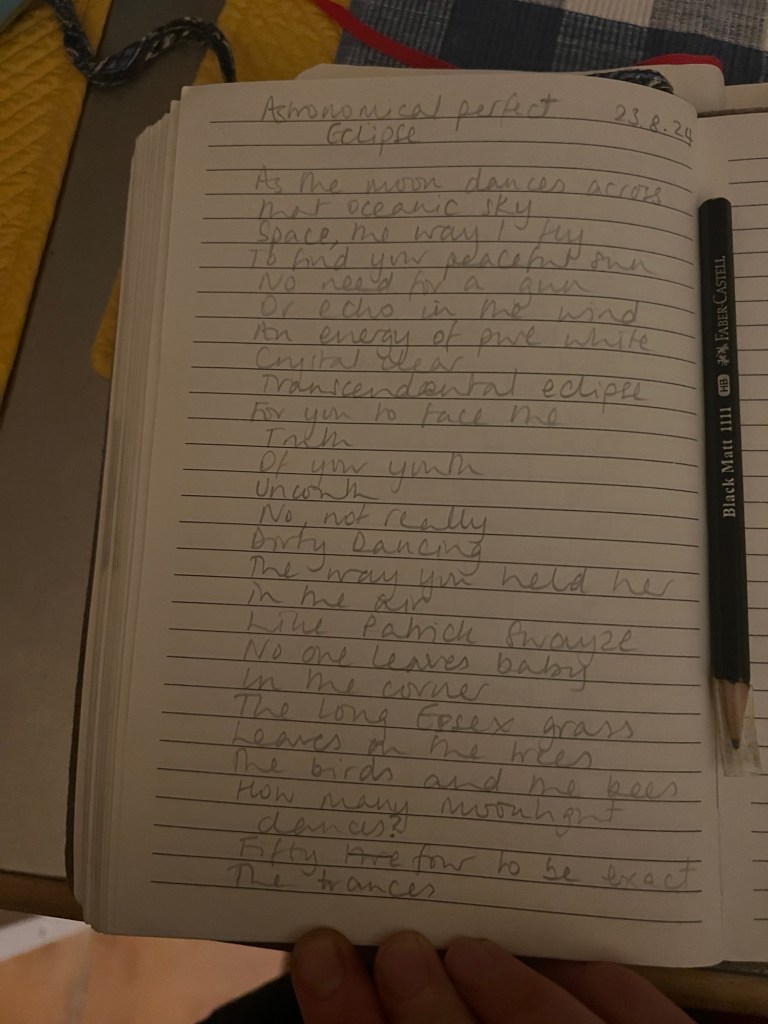 Astronomical perfect 23.8.24
Eclipse
As the moon dances across
that oceanic sky
Space, the way I fly
To find your peaceful sun
No need for a gun
Or echo in the wind
An energy of pure white
Crystal clear
Transcendental eclipse
For you to face the
Truth
Of your youth
Uncouth
No, not really
Dirty Dancing
The way you held her
in the air
Like Patrick Swayze
No one leaves baby
In the corner
The long Essex grass
Leaves on the trees
The birds and the bees
How many moonlight
dances?
Fifty four to be exact
The trances
Black Matt 1111 HB FABER-CASTELL